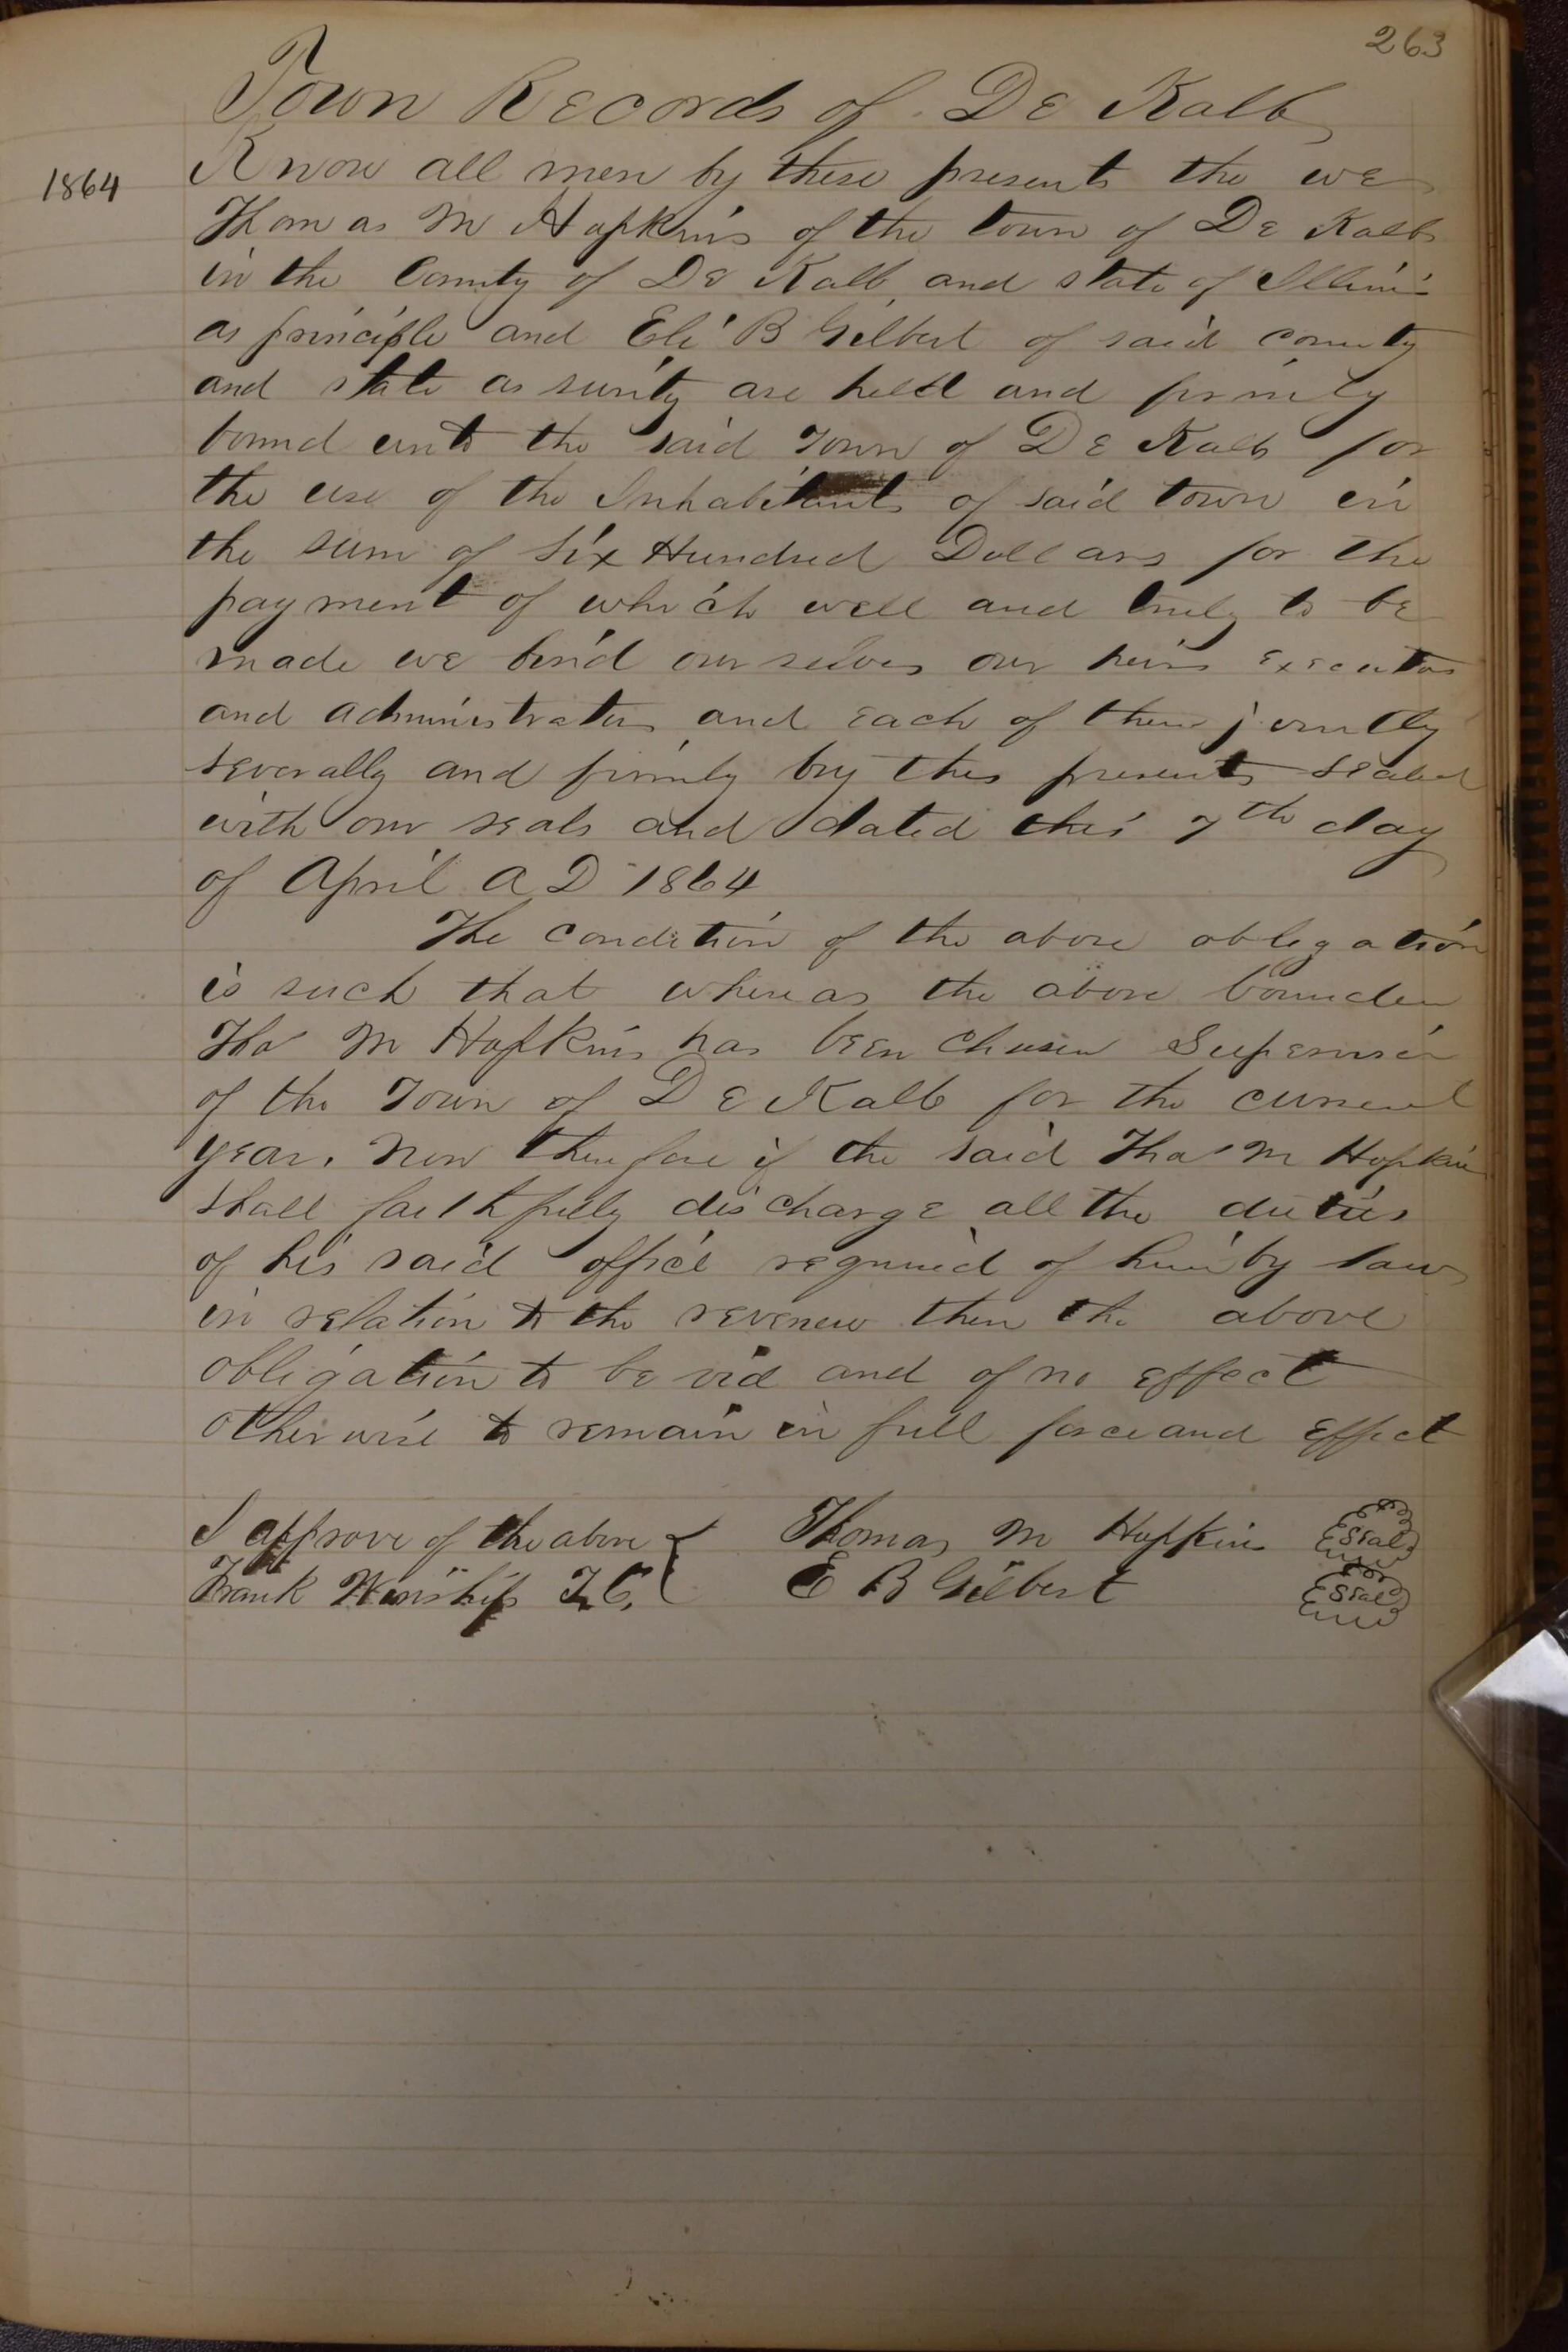 263
Town Records of De Kalb
1864
Know all men by these presents the we
Thomas M Hopkins of the town of De Kalb
in the County of De Kalb, and state of Illinois
as principle and Eli B Gilbert of said county
and state as surity are held and firmly
bound unto the said Town of De Kalb for
the use of the Inhabitants of said town in
the sum of Six Hundred Dollars for the
payment of which well and truly to be
made we bind our selves our heirs executors
and administrators and each of them jointly
severally and firmly by this presents sealed
with our seals and dated this 7th day
of April A D 1864
The condition of the above obligation
is such that whereas the above bounden
Tho' M Hopkins has been chosen Supervisor
of the Town of De Kalb for the current
year. Now therefore if the said Tho' M Hopkins
shall faithfully discharge all the duties
of his said office required of him by law
in relation to the revenew then the above
obligation to be void and of no effect
otherwise to remain in full force and effect
I approve of the above { Thomas M Hopkins Seal
Frank Winship T. C. { E B Gilbert Seal